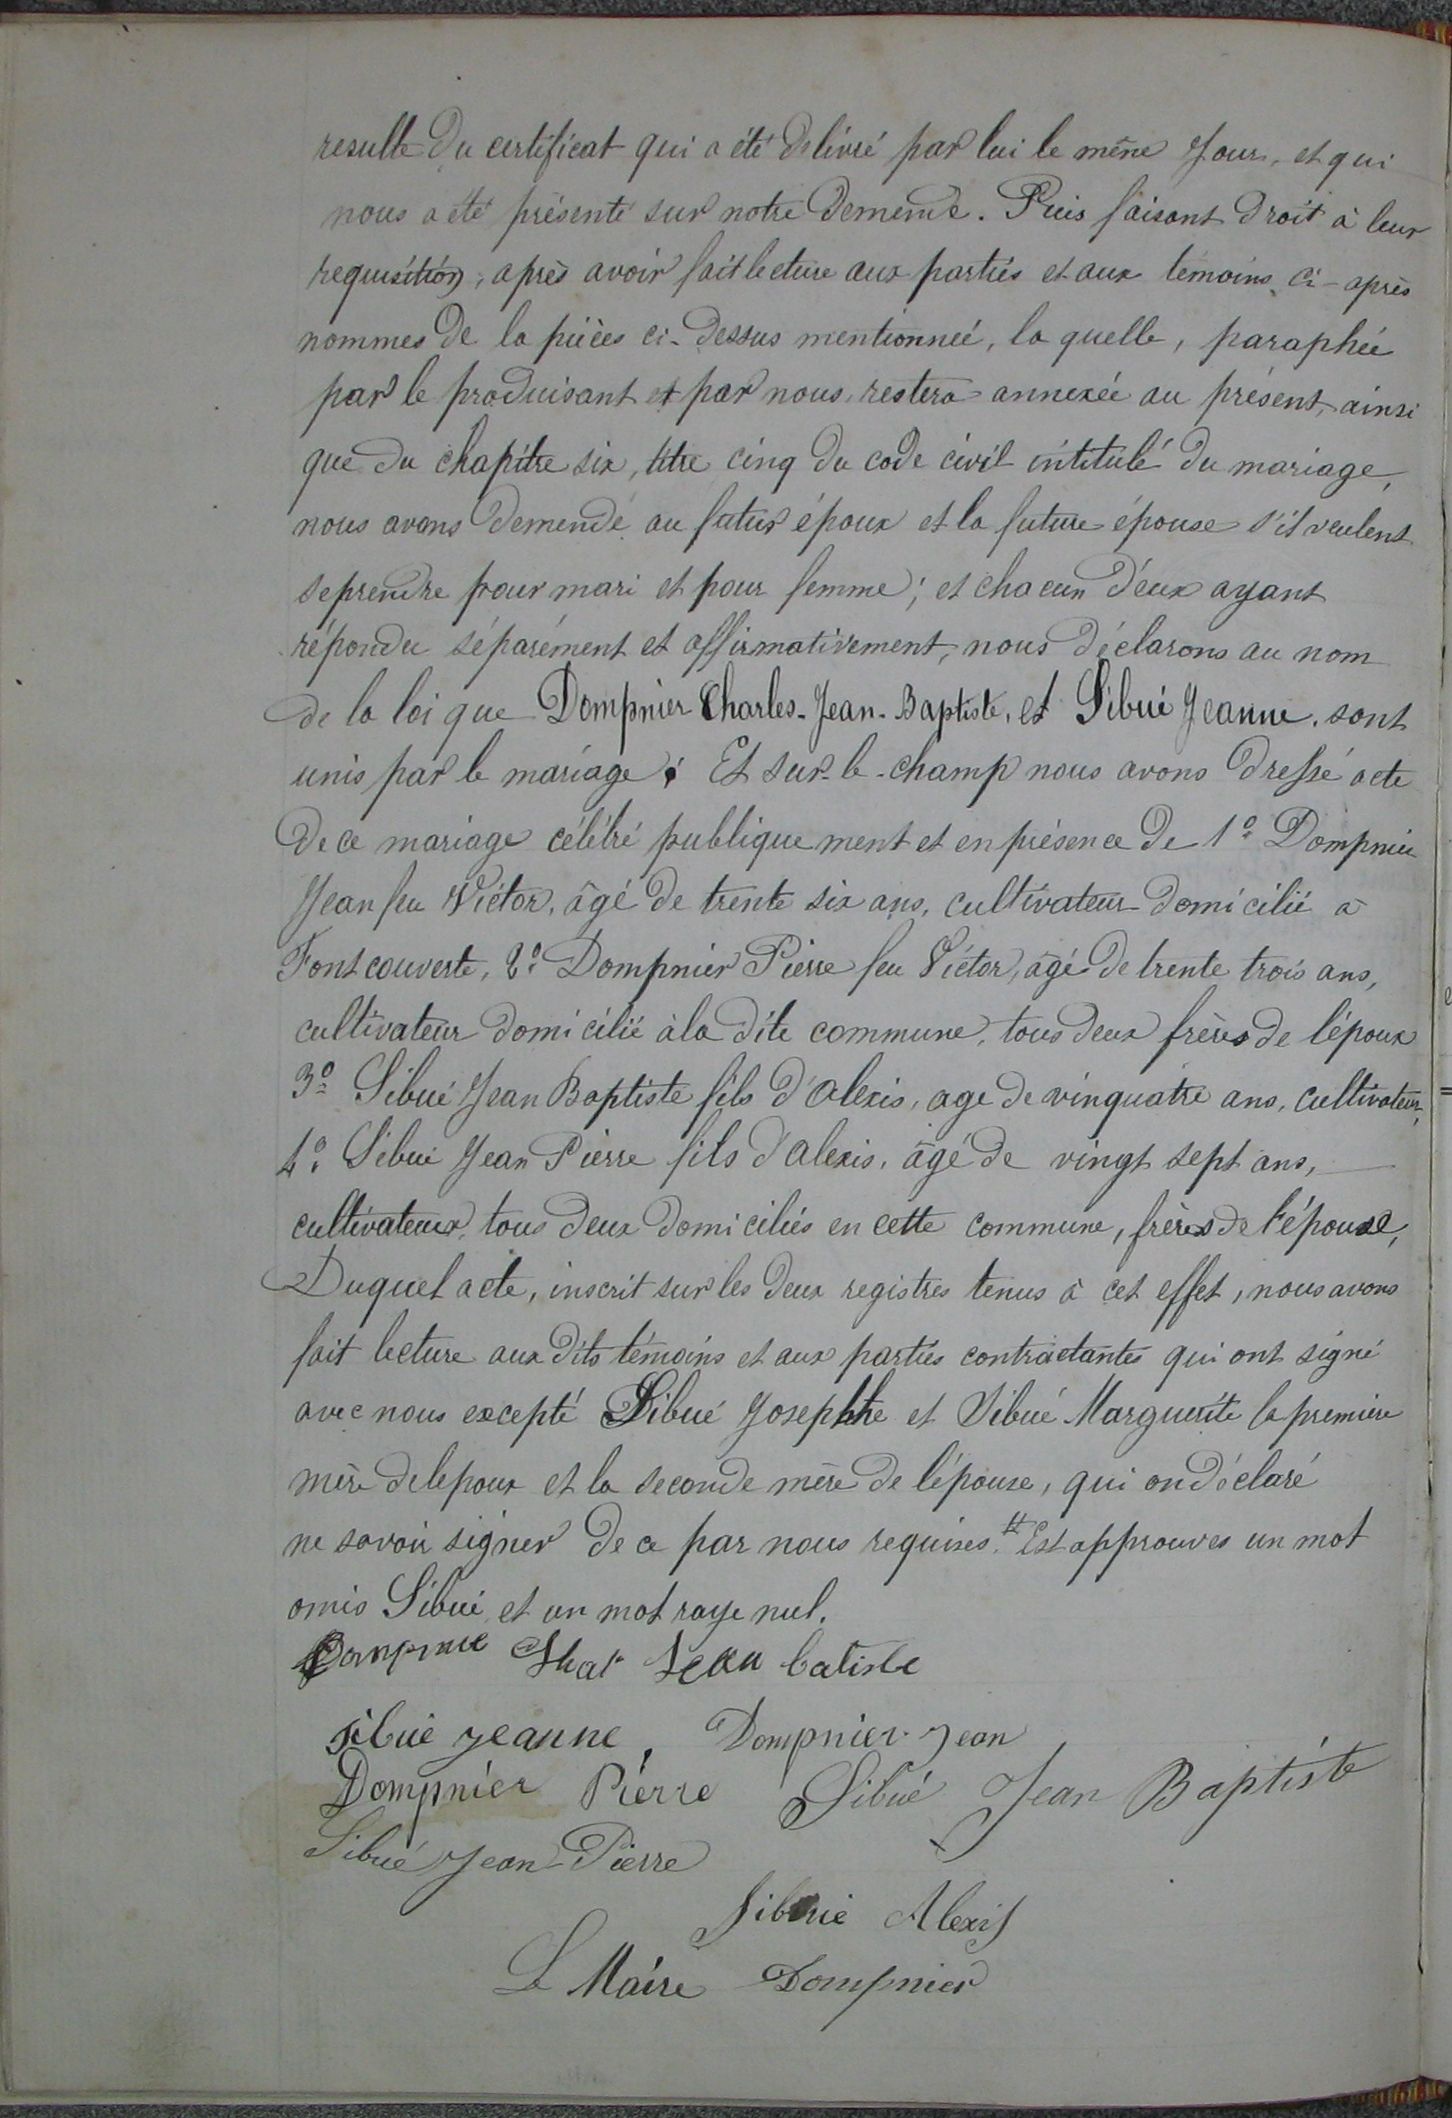 resulte du certificat qui a été delivré par lui le même Jour, et qui
nous a été présenté sur notre demende. Puis faisant droit à leur
requisition, après avoir fait lecture aux parties et aux témoins ci-après
nommes de la pièces ci-dessus mentionneé, la quelle, paraphée
par le produisant et par nous, restera annexée au présent, ainsi
que du chapitre six, titre cinq du code civil intitulé du mariage,
nous avons demendé au futur époux et la future épouse s'il veulent
seprendre pour mari et pour femme; et chacun d'éux ayant
répondu séparément et affirmativement, nous déclarons au nom
de la loi que Dompnier Charles-Jean-Baptiste, et Sibué Jeanne. sont
unis par le mariage. Et sur-le-champ nous avons dressé acte
de ce mariage célébré publiquement et en présence de 1º Dompnier
Jean feu Victor, âgé de trente six ans, cultivateur domicilié à
Fontcouverte, 2º Dompnier Pierre feu Victor, âgé de trente trois ans,
cultivateur domicilié à la dite commune, tous deux frères de l'époux
3º Sibué Jean Baptiste fils d'Alexis, age de vinquatre ans, cultivateur,
4º Sibué Jean Pierre fils d'alexis, âgé de vingt sept ans,
cultivateurs, tous deux domiciliés en cette commune, frères de l'épouse,
Duquel acte, inscrit sur les deux registres tenus à cet effet, nous avons
fait lecture aux dits témoins et aux parties contractantes qui ont signé
avec nous excepté Sibué Josephte et Sibué Marguerite la première
mère delepoux et la seconde mère de l'épouse, qui on déclaré
ne savoir signer de ce par nous requises. # Est approuves un mot
omis Sibué et un mot raye nul.
Dompnie Jean batiste
sibué jeanne, Dompnier Jean
Dompnier Pierre Sibué Jean Baptiste
Sibué Jean-Pierre
Sibué Alexis
Le Maire Dompnier